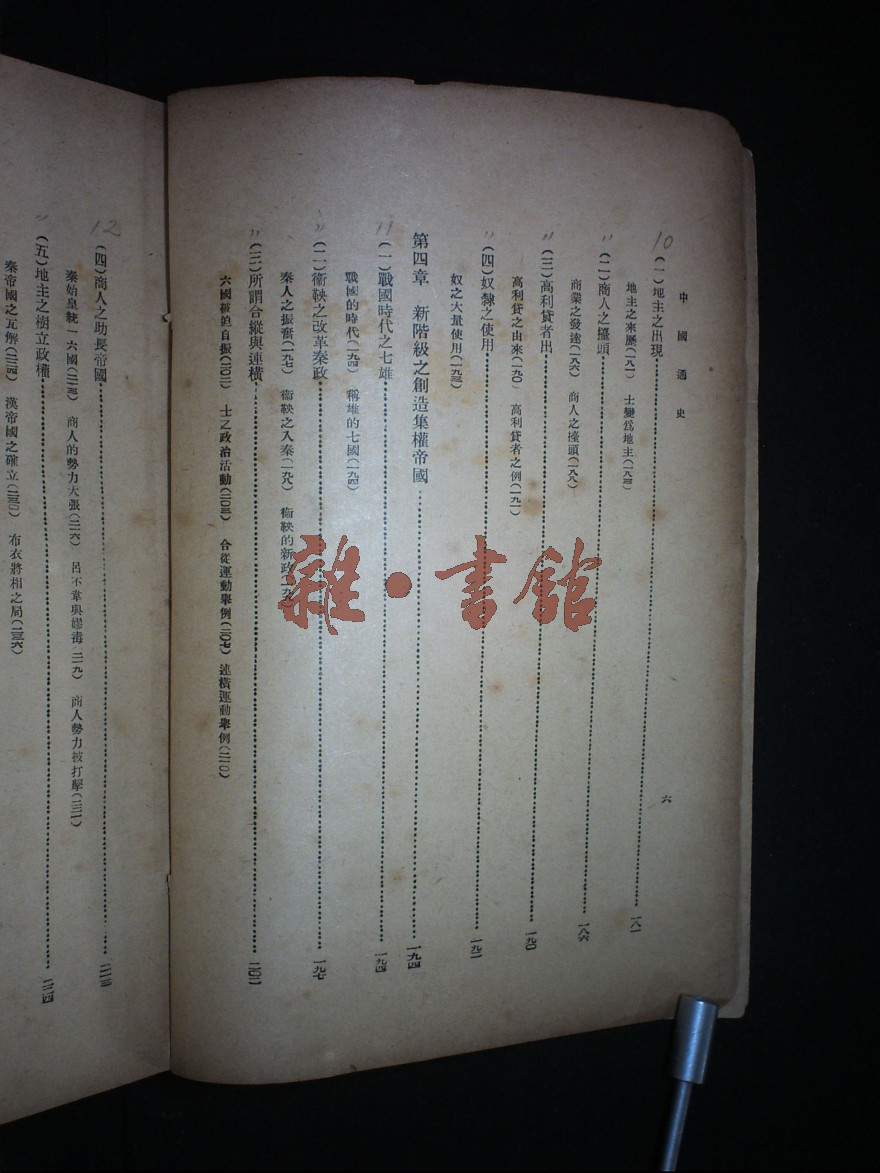 中國通史
六
10
(一)地主之出現……一八一
地主之來歷(一八一) 士變爲地主(一八四)
〃
(二)商人之擡頭……一八六
商業之發達(一八六) 商人之擡頭(一八八)
〃
(三)高利貸者出……一九〇
高利貸之由來(一九〇) 高利貸者之例(一九一)
(四)奴隸之使用……一九二
奴之大量使用(一九三)
第四章 新階級之創造集權帝國……一九四
11
(一)戰國時代之七雄……一九四
戰國的時代(一九四) 稱雄的七國(一九四)
〃
(二)衞鞅之改革秦政……一九七
秦人之振奮(一九七) 衞鞅之入秦(一九八) 衞鞅的新政(一九九)
〃
(三)所謂合縱與連橫……二〇二
六國被迫自振(二〇二) 士之政治活動(二〇三) 合從運動舉例(二〇七) 連橫運動舉例(二一〇)
12
(四)商人之助長帝國……二一三
秦始皇統一六國(二一三) 商人的勢力大張(二一六) 呂不韋與嫪毒(二一九) 商人勢力被打擊(二二一)
〃
(五)地主之樹立政權……二二四
秦帝國之瓦解(二二四) 漢帝國之確立(二三〇) 布衣將相之局(二三六)
雜·書館